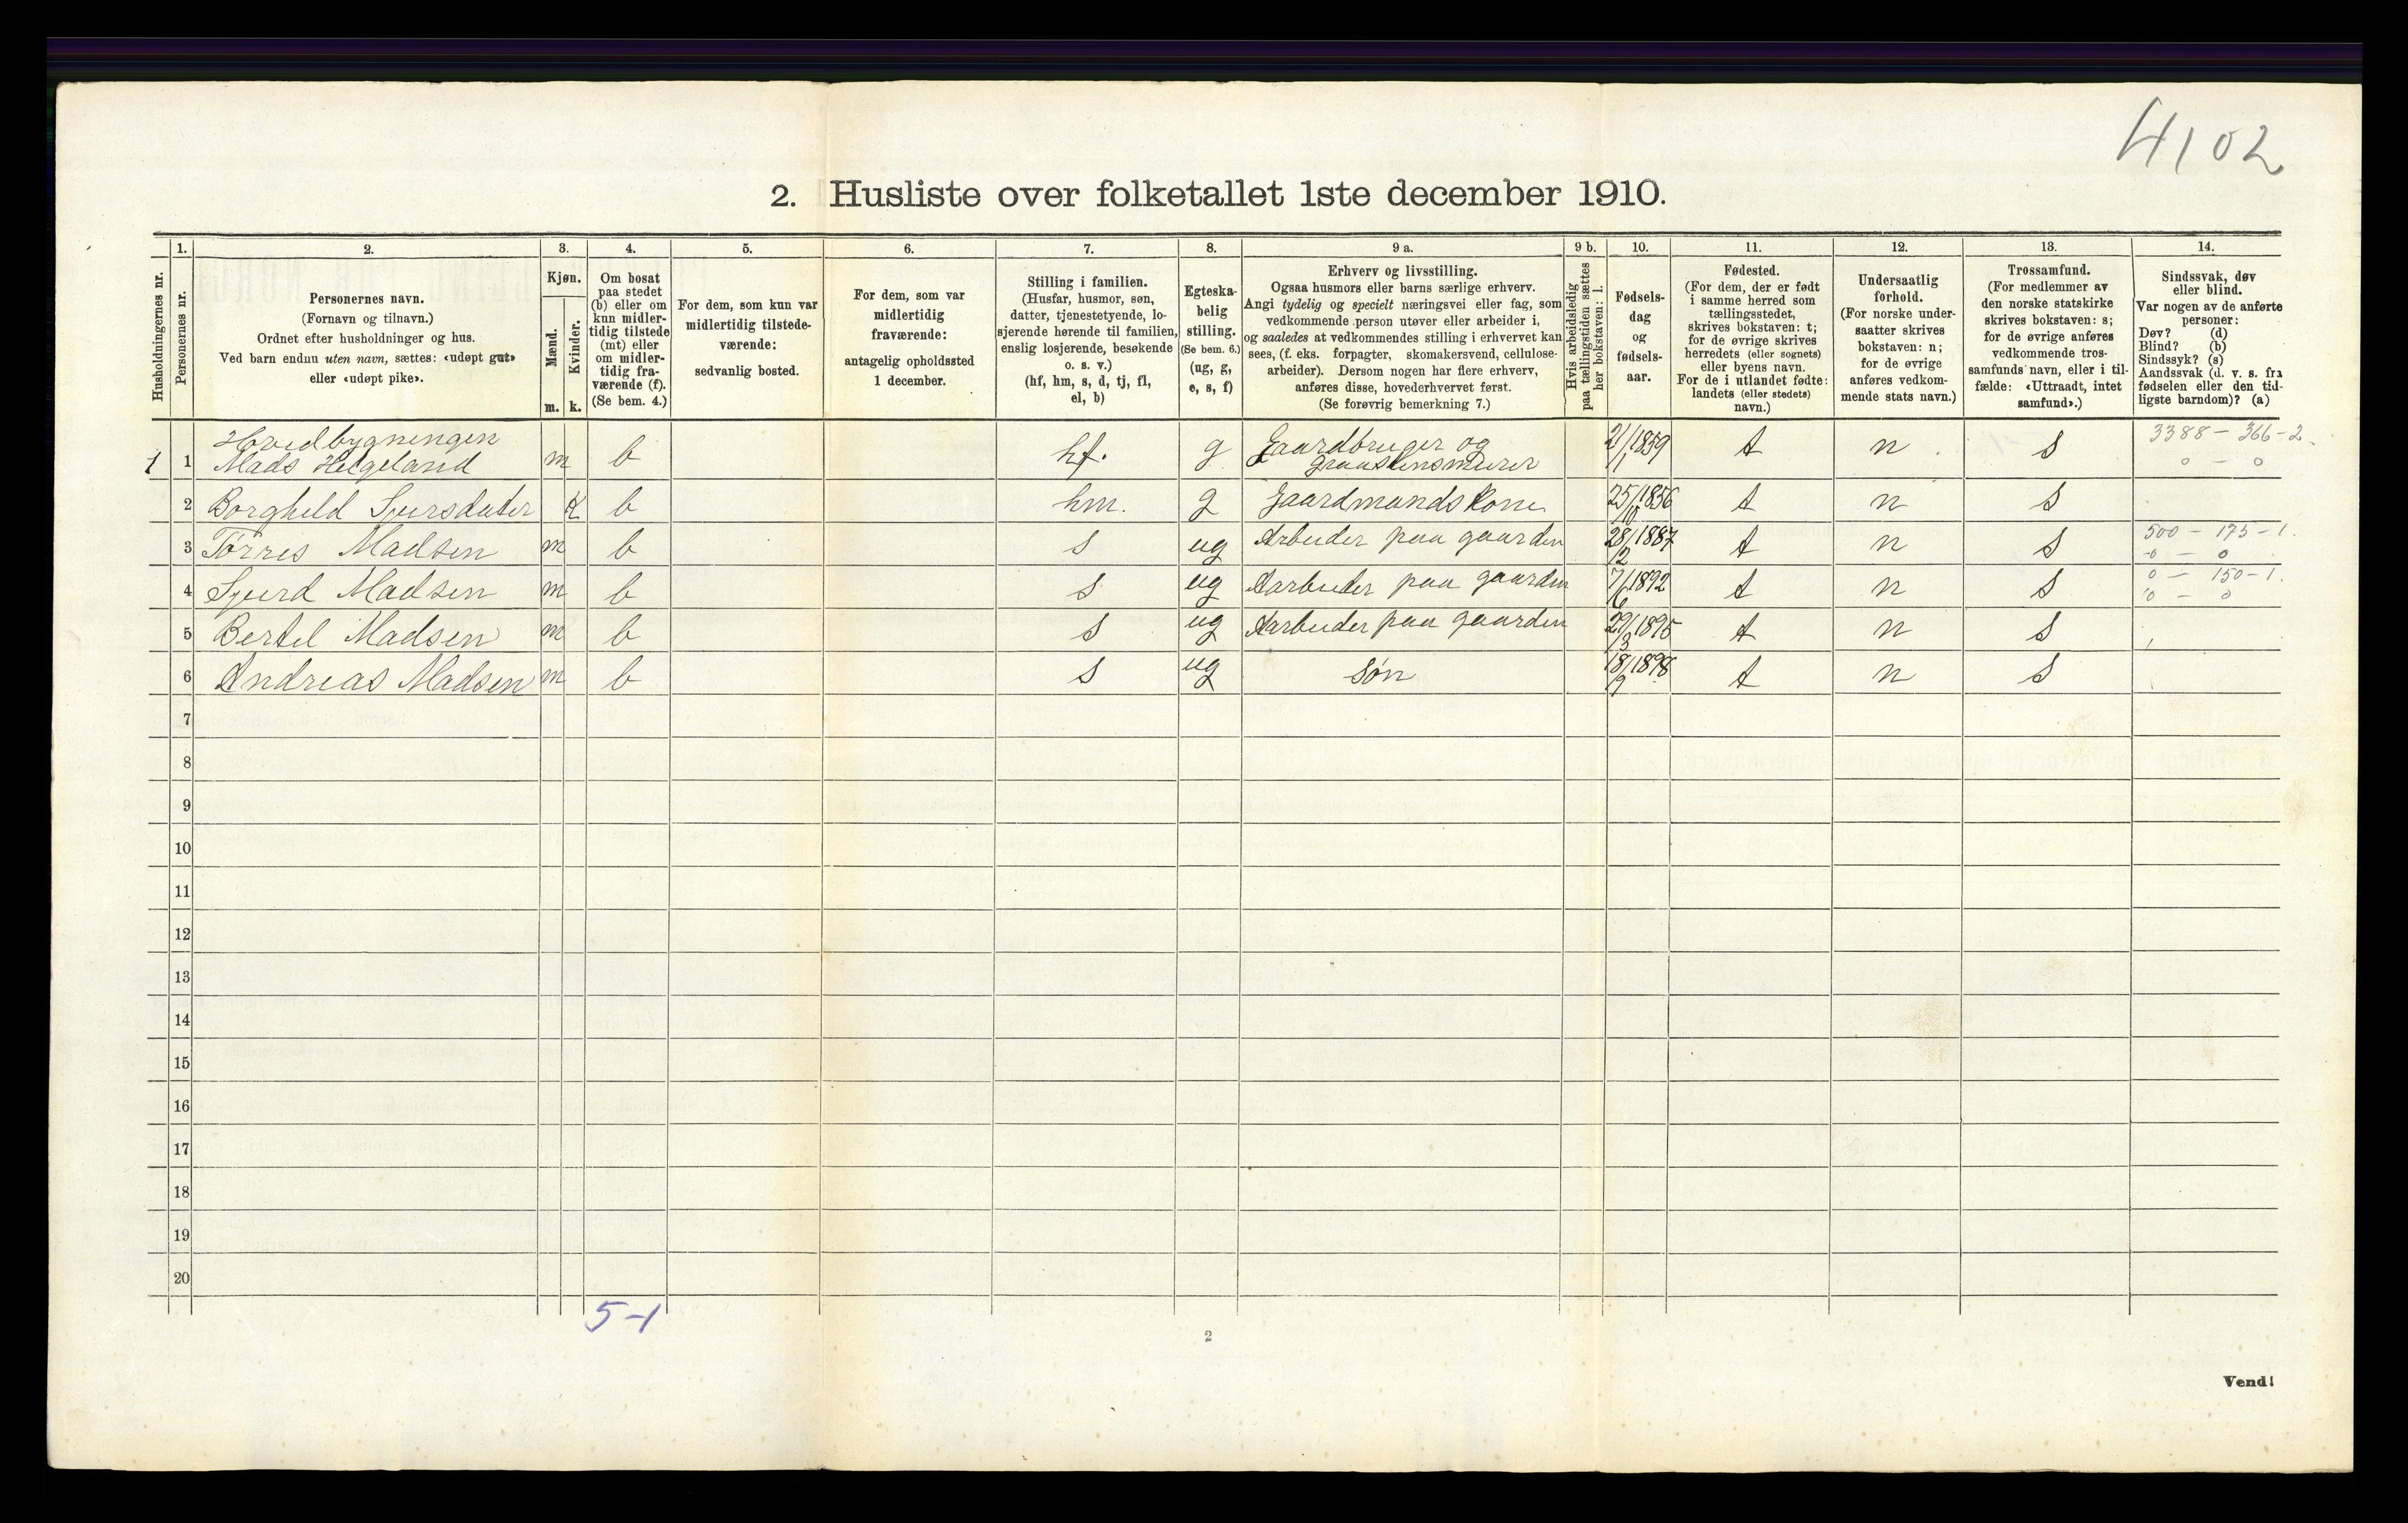 4102
2. Husliste over folketallet 1ste december 1910.
Husholdningernes nr.
1.
Personernes nr.
2.
Personernes navn.
(Fornavn og tilnavn.)
Ordnet efter husholdninger og hus.
Ved barn endnu uten navn, sættes: «udøpt gut»
eller «udøpt pike».
3.
Kjøn.
Mænd.
m.
Kvinder.
k.
4.
Om bosat
paa stedet
(b) eller om
kun midler-
tidig tilstede
(mt) eller
om midler-
tidig fra-
værende (f).
(Se bem. 4.)
5.
For dem, som kun var
midlertidig tilstede-
værende:
sedvanlig bosted.
6.
For dem, som var
midlertidig
fraværende:
antagelig opholdssted
1 december.
7.
Stilling i familien.
(Husfar, husmor, søn,
datter, tjenestetyende, lo-
sjerende hørende til familien,
enslig losjerende, besøkende
o. s. v.)
(hf, hm, s, d, tj, fl,
el, b)
8.
Egteska-
belig
stilling.
(Se bem. 6.)
(ug, g,
e, s, f)
9 a.
Erhverv og livsstilling.
Ogsaa husmors eller barns særlige erhverv.
Angi tydelig og specielt næringsvei eller fag, som
vedkommende person utøver eller arbeider i,
og saaledes at vedkommendes stilling i erhvervet kan
sees, (f. eks. forpagter, skomakersvend, cellulose-
arbeider). Dersom nogen har flere erhverv,
anføres disse, hovederhvervet først.
(Se forøvrig bemerkning 7.)
9 b.
Hvis arbeidsledig
paa tællingstiden sættes
her bokstaven: l.
10.
Fødsels-
dag
og
fødsels-
aar.
11.
Fødested.
(For dem, der er født
i samme herred som
tællingsstedet,
skrives bokstaven: t;
for de øvrige skrives
herredets (eller sognets)
eller byens navn.
For de i utlandet fødte:
landets (eller stedets)
navn.)
12.
Undersaatlig
forhold.
(For norske under-
saatter skrives
bokstaven: n;
for de øvrige
anføres vedkom-
mende stats navn.)
13.
Trossamfund.
(For medlemmer av
den norske statskirke
skrives bokstaven: s;
for de øvrige anføres
vedkommende tros-
samfunds navn, eller i til-
fælde: «Uttraadt, intet
samfund».)
14.
Sindssvak, døv
eller blind.
Var nogen av de anførte
personer:
Døv? (d)
Blind? (b)
Sindssyk? (s)
Aandssvak (d. v. s. fra
fødselen eller den tid-
ligste barndom)? (a)
Hovedbygningen
1 1 Mads Helgeland m b hf. g Gaardbruger og graastensmurer 21/1 1859 t n s 3388 - 366-2. 0 - 0
2 Borghild Sjursdater k b hm. g Gaardmands kone 25/10 1856 t n s
3 Tørres Madsen m b s ug Arbeider paa gaarden 28/2 1887 t n s 500 - 175-1. 0 - 0
4 Sjurd Madsen m b s ug Aarbeider paa gaarden 7/6 1892 t n s 0 - 150-1. 0 - 0
5 Bertel Madsen m b s ug Aarbeider paa gaarden 29/3 1895 t n s
6 Andreas Madsen m b s ug søn 18/9 1898 t n s
7
8
9
10
11
12
13
14
15
16
17
18
19
20
5-1
2
Vend!